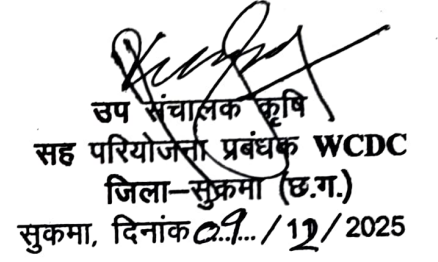 उप संचालक कृषि
सह परियोजना प्रबंधक WCDC
जिला–सुकमा (छ.ग.)
सुकमा, दिनांक 09/12/2025